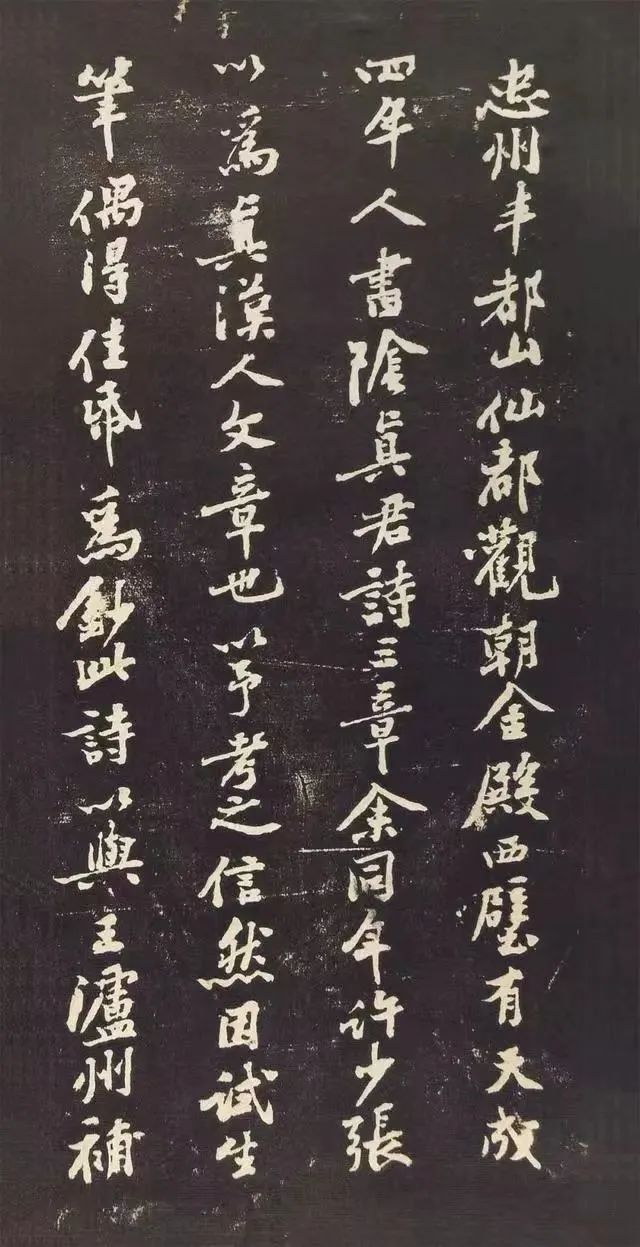 忠州丰都山仙都觀朝金殿西壁有天成
四年人書陰真君詩三章余同年許少張
以爲真漢人文章也以予考之信然因試生
筆偶得佳紙爲鈔此詩以與王瀘州補